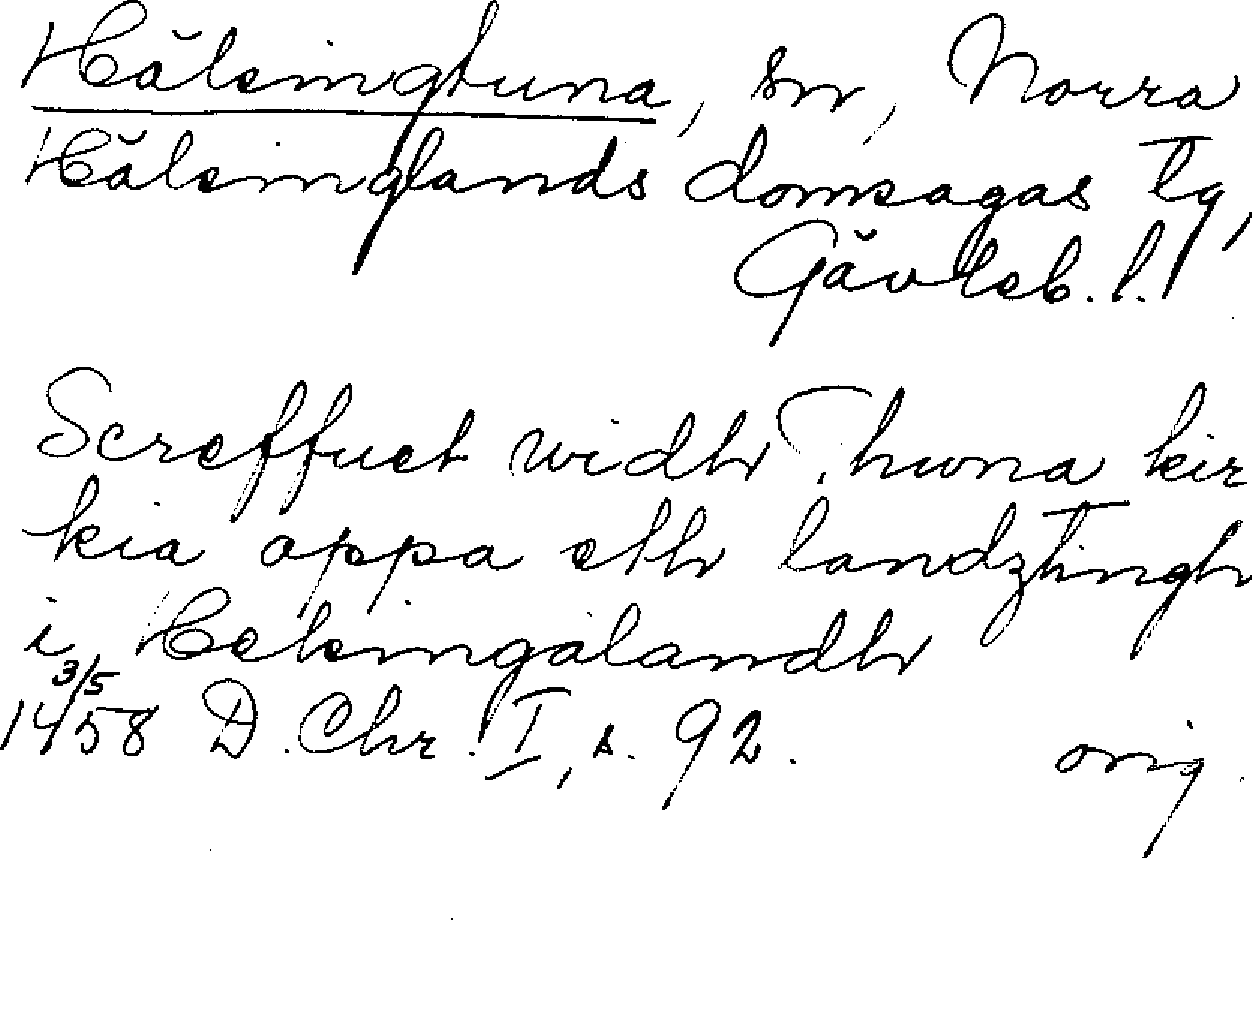 Hälsingtuna, sn, Norra
Hälsinglands domsagas tg,
Gävleb. l.
Screffuet widh Thwna kir
kia oppa eth landztingh
i Helsingalandh
3/5
1458 D. Chr. I, s. 92. orig.